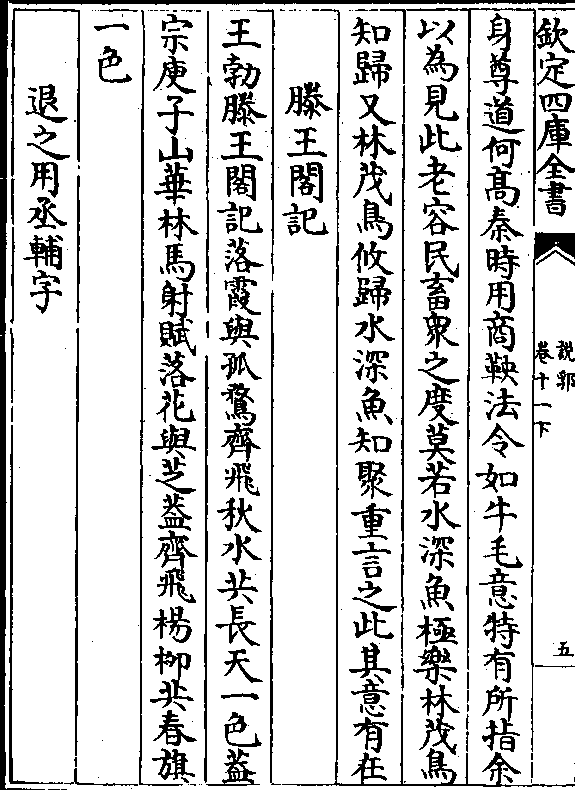 欽定四庫全書
說郛
卷十一下
五
身尊道何髙秦時用商鞅法令如牛毛意特有所指余
以為見此老容民畜衆之度莫若水深魚極樂林茂鳥
知歸又林茂鳥攸歸水深魚知聚重言之此其意有在
滕王閣記
王勃滕王閣記落霞與孤鶩齊飛秋水共長天一色葢
宗庾子山華林馬射賦落花與芝葢齊飛楊栁共春旗
一色
退之用丞輔字